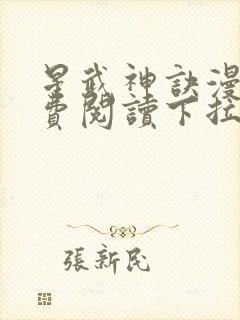 星武神訣漫
費閱讀下拉
張新民